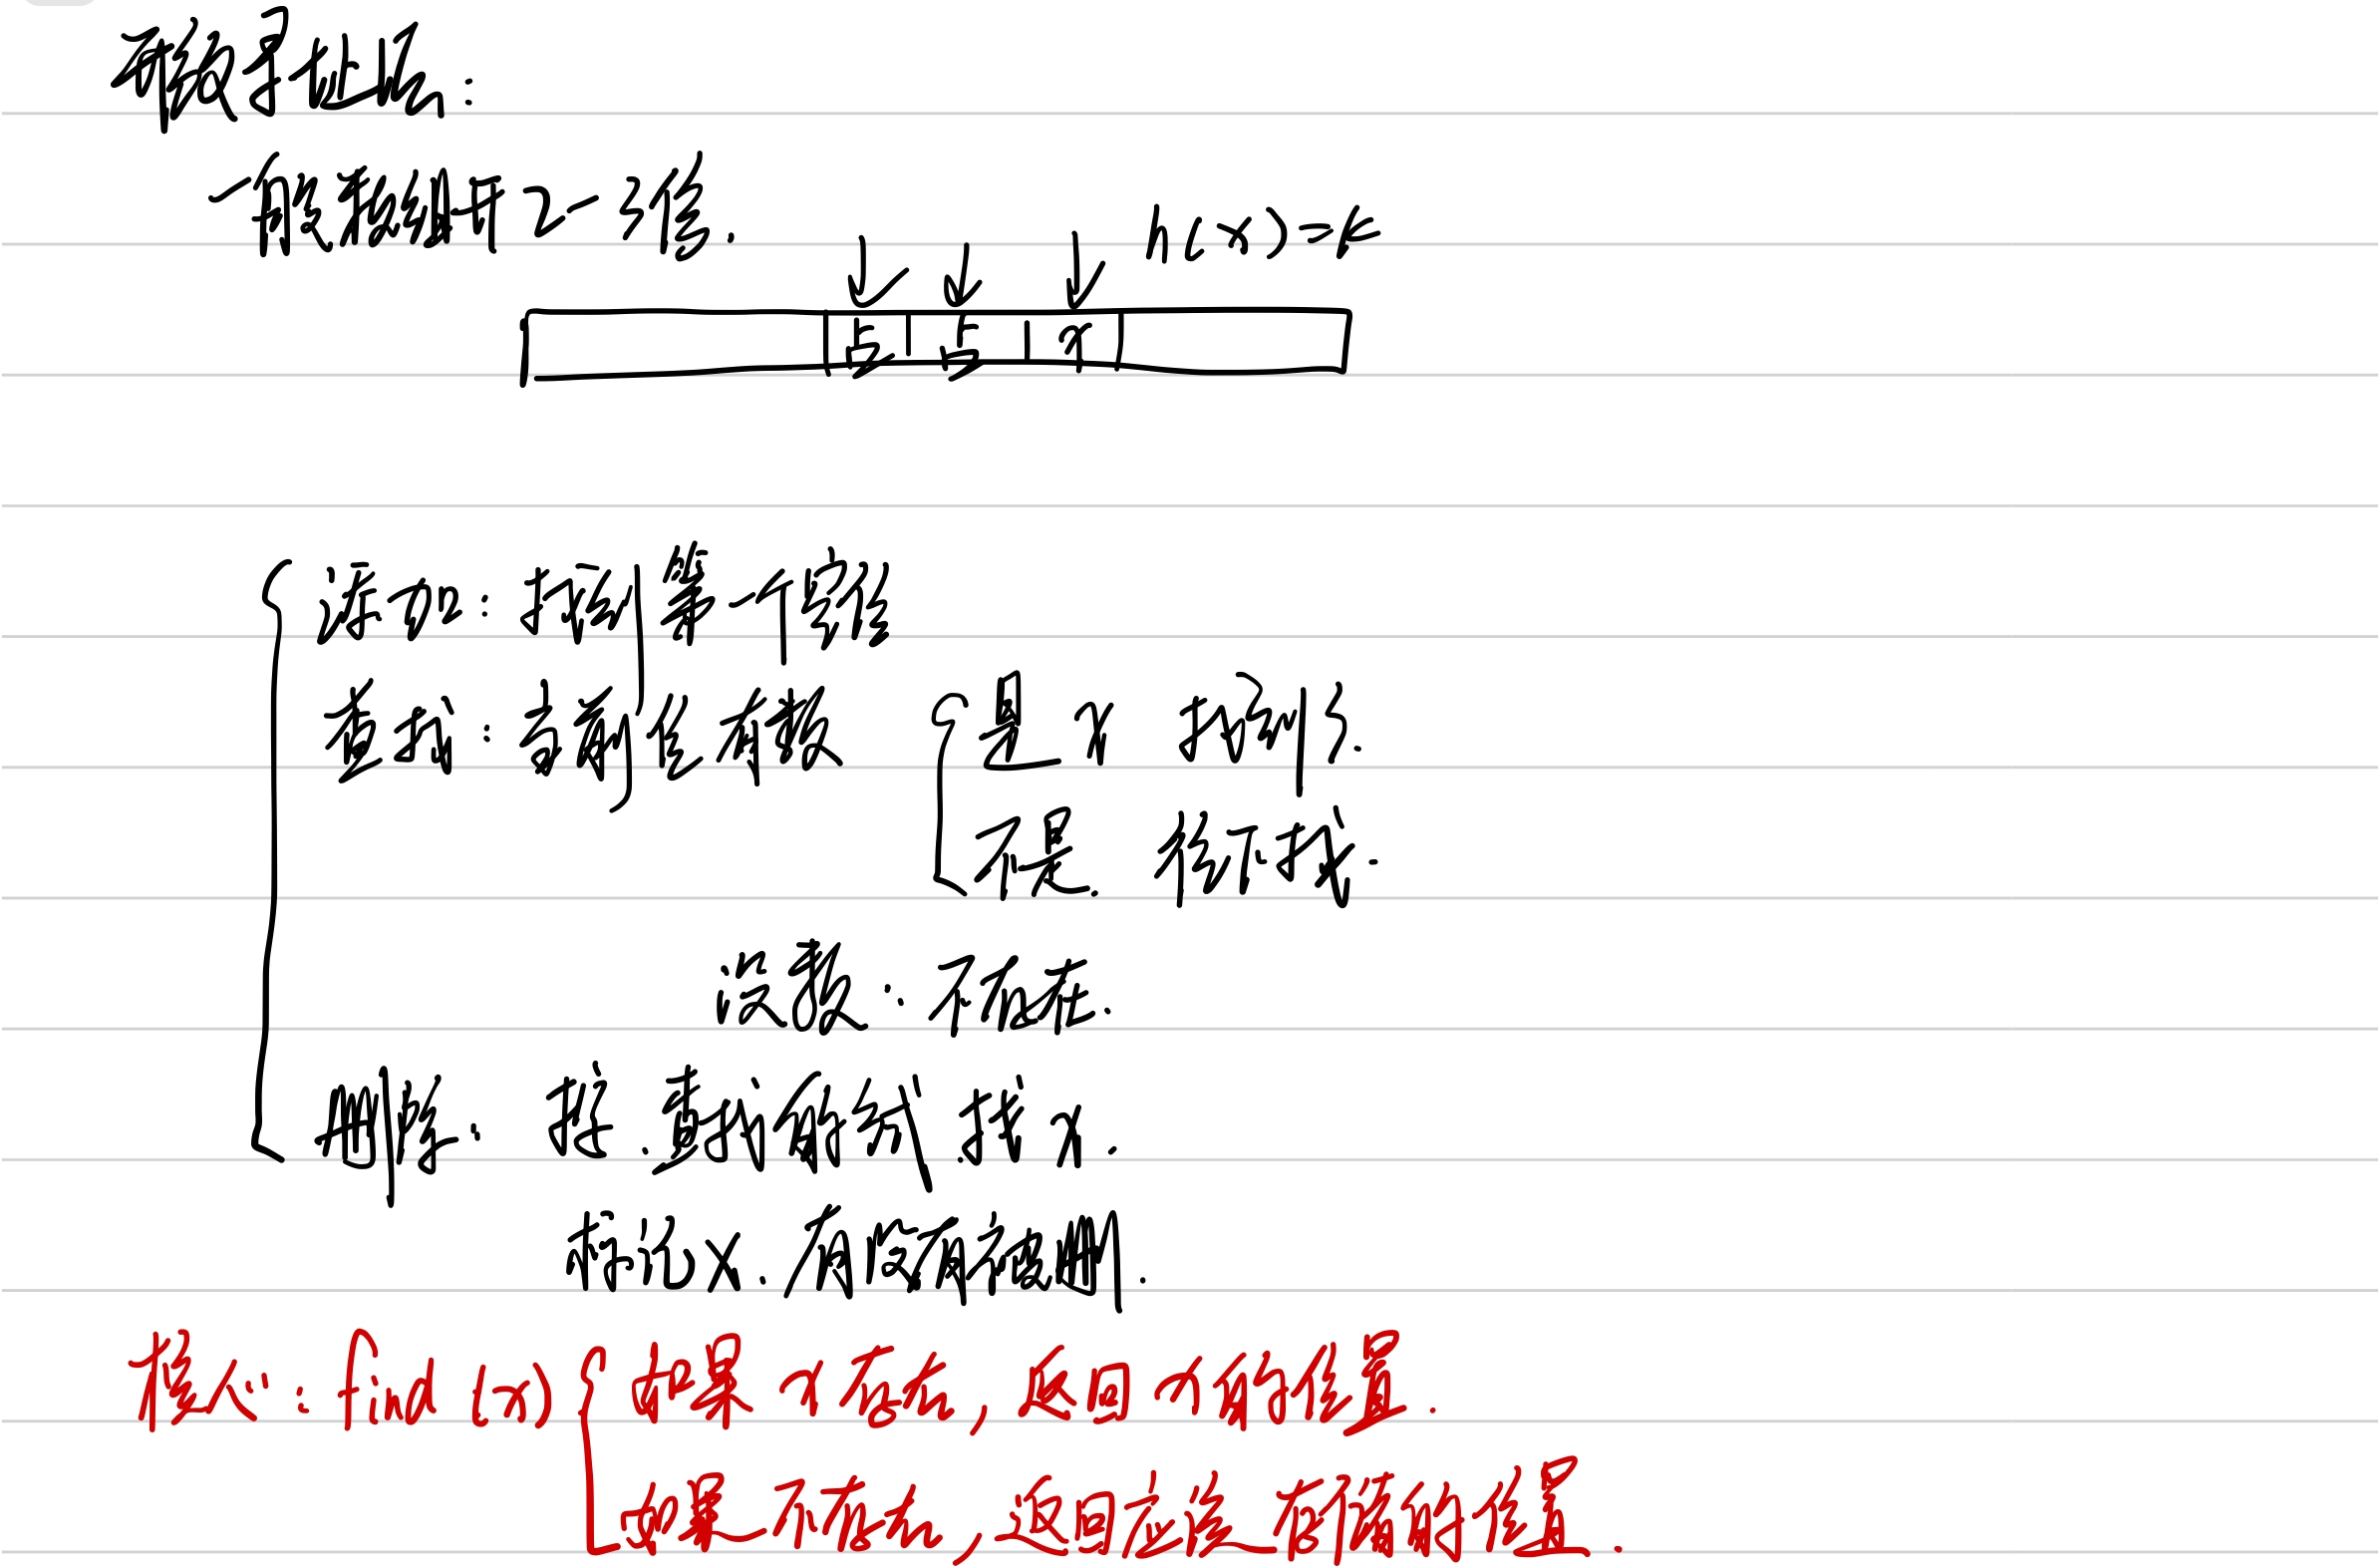 开放寻址法:
一般数组开2~3倍.
h(x)=k
添加: 找到第一个空位
查找: 看到这位有数 是x 找到了.
不是. 往下找.
没数: 不存在.
删除. 按.查找的方式.找x.
标记x.
核心: find(x) 如果x存在,返回x的位置.
如果不存在,返回应该存储的位置.